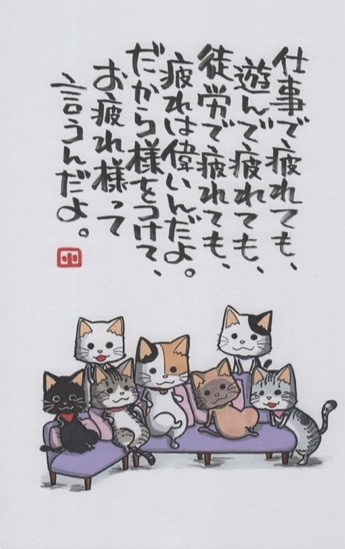 仕事で疲れても、
遊んで疲れても、
徒労で疲れても、
疲れは偉いんだよ。
だから様をつけて、
お疲れ様って
言うんだよ。
小